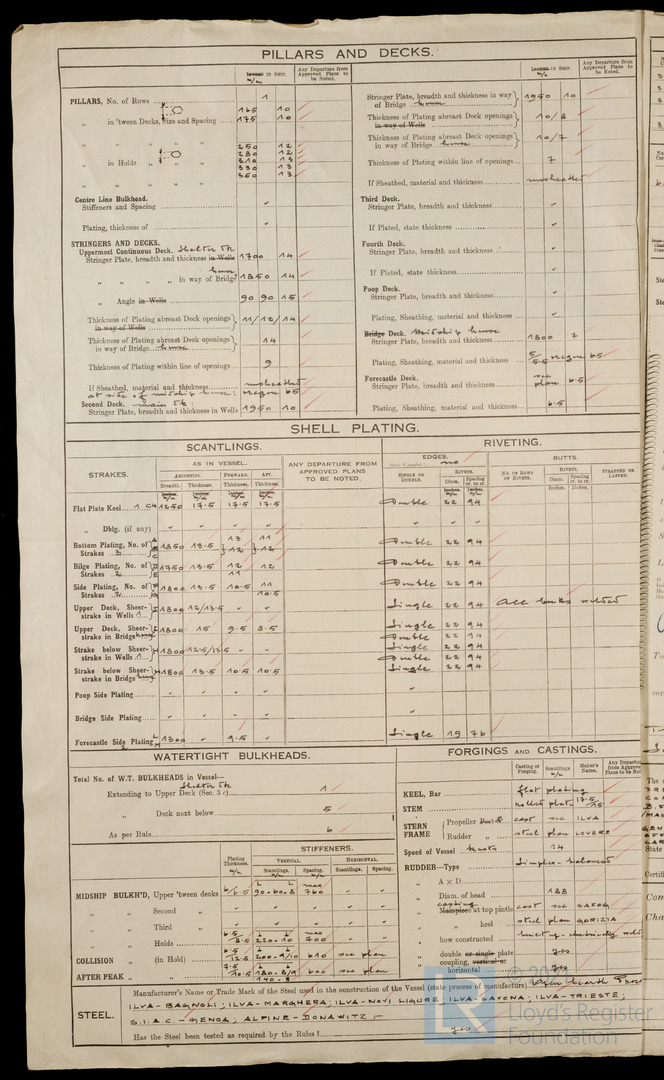 PILLARS AND DECKS.
Inches in Ship. m/m
Any Departure from Approved Plans to be Noted.
PILLARS, No. of Rows 1
„ in 'tween Decks, Size and Spacing 165 10
175 10
„ „ „ „ 250 12
280 12
„ in Holds „ „ 310 13
330 13
„ „ „ „ 350 13
Centre Line Bulkhead.
Stiffeners and Spacing
Plating, thickness of
STRINGERS AND DECKS.
Uppermost Continuous Deck. Shelter Dk
Stringer Plate, breadth and thickness in Wells 1700 14
„ „ „ „ in way of Bridge house 1850 14
„ Angle in Wells 90 90 15
Thickness of Plating abreast Deck openings in way of Wells 11/12/14
Thickness of Plating abreast Deck openings in way of Bridge house 14
Thickness of Plating within line of openings 9
If Sheathed, material and thickness unsheathed
at side of midship house: 65
Second Deck. main Dk:
Stringer Plate, breadth and thickness in Wells 1950 10
Inches in Ship. m/m
Any Departure from Approved Plans to be Noted.
Stringer Plate, breadth and thickness in way of Bridge house 1950 10
Thickness of Plating abreast Deck openings in way of Wells 10/8
Thickness of Plating abreast Deck openings in way of Bridge house 10/7
Thickness of Plating within line of openings 7
If Sheathed, material and thickness unsheathed
Third Deck.
Stringer Plate, breadth and thickness
If Plated, state thickness
Fourth Deck.
Stringer Plate, breadth and thickness
If Plated, state thickness
Poop Deck.
Stringer Plate, breadth and thickness
Plating, Sheathing, material and thickness
Bridge Deck. Midship house
Stringer Plate, breadth and thickness 1800 7
Plating, Sheathing, material and thickness 65
Forecastle Deck.
Stringer Plate, breadth and thickness see plan 6.5
Plating, Sheathing, material and thickness 6.5
SHELL PLATING.
SCANTLINGS.
RIVETING.
STRAKES.
AS IN VESSEL.
ANY DEPARTURE FROM APPROVED PLANS TO BE NOTED.
EDGES.
BUTTS.
Amidships. Forward. Aft.
Breadth. Thickness. Thickness. Thickness.
Single or Double. Rivets. Diam. Spacing cr. to cr.
No. of Rows of Rivets. Rivets. Diam. Spacing cr. to cr. Strapped or Lapped.
Flat Plate Keel 1250 17.5 17.5 17.5 Double 22 94
„ Dblg. (if any)
Bottom Plating, No. of Strakes 3 1850 13.5 13 12 11 12 Double 22 94
Bilge Plating, No. of Strakes 2 1750 13.5 12 11 12 Double 22 94
Side Plating, No. of Strakes 2 1800 13.5 10.5 11 10.5 Double 22 94
Upper Deck, Sheerstrake in Wells 1 1800 12/13.5 Single 22 94 All butts welded
Upper Deck, Sheerstrake in Bridge house 1800 15 9.5 8.5 Single 22 94
Double 22 94
Strake below Sheerstrake in Wells 1 1800 12.5/13.5 Single 22 94
Double 22 94
Strake below Sheerstrake in Bridge house 1800 13.5 10.5 10.5 Single 22 94
Poop Side Plating
Bridge Side Plating
Forecastle Side Plating 1300 9.5 Single 19 76
WATERTIGHT BULKHEADS.
Total No. of W.T. BULKHEADS in Vessel—
Shelter Dk
Extending to Upper Deck (Sec. 3 c) 1
„ Deck next below 5
As per Rule 6
STIFFENERS.
Plating Thickness. VERTICAL. HORIZONTAL.
Scantlings. Spacing. Scantlings. Spacing.
MIDSHIP BULKH'D, Upper 'tween decks 6/6.5 90.60.8 max 760
„ „ Second „
„ „ Third „
„ „ Holds 6.5 8.5 220.10 max 700
COLLISION „ (in Hold) 6.5 12.5 200.9/10 610 see plan
AFTER PEAK „ „ 7.5 10.5 180.8/9 600 see plan
FORGINGS AND CASTINGS.
Casting or Forging. Scantlings. m/m Maker's Name. Any Departure from Approved Plans to be Noted
KEEL, Bar flat plating
STEM rolled plate 17.5 15
STERN FRAME Propeller Post cast see ILVA
Rudder „ steel plan LOVERE
Speed of Vessel knots 14
RUDDER—Type Simplex-balanced
„ A × D
„ Diam. of head 188
„ Mainpiece at top pintle casting cast see SAFOG
„ „ heel steel plan GORIZIA
„ how constructed built up-electrically weld
„ double or single plate yes
„ coupling, vertical or horizontal yes
STEEL.
Manufacturer's Name or Trade Mark of the Steel used in the construction of the Vessel (state process of manufacture) Open hearth Proc
ILVA-BAGNOLI; ILVA-MARGHERA; ILVA-NOVI LIGURE; ILVA-SAVONA; ILVA-TRIESTE;
S.I.A.C.-GENOA; ALPINE-DONAWITZ -
Has the Steel been tested as required by the Rules yes
Lloyd's Register
Foundation